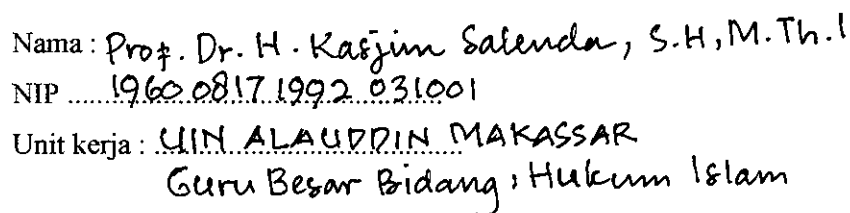 Nama : Prof. Dr. H. Kasjim Salenda, S.H, M.Th.I
NIP ...... 19600817 1992 031001
Unit kerja : UIN ALAUDDIN MAKASSAR
Guru Besar Bidang : Hukum Islam